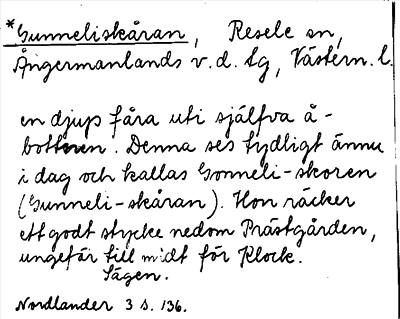 *Gunneliskåran, Resele sn,
Ångermanlands v. d. tg, Västern. l.
en djup fåra uti själfva å-
bottnen. Denna ses tydligt ännu
i dag och kallas Gonneli-skoren
(Gunneli-skåran). Hon räcker
ett godt stycke nedom Prästgården,
ungefär till midt för Klock.
Sägen.
Nordlander 3 s. 136.